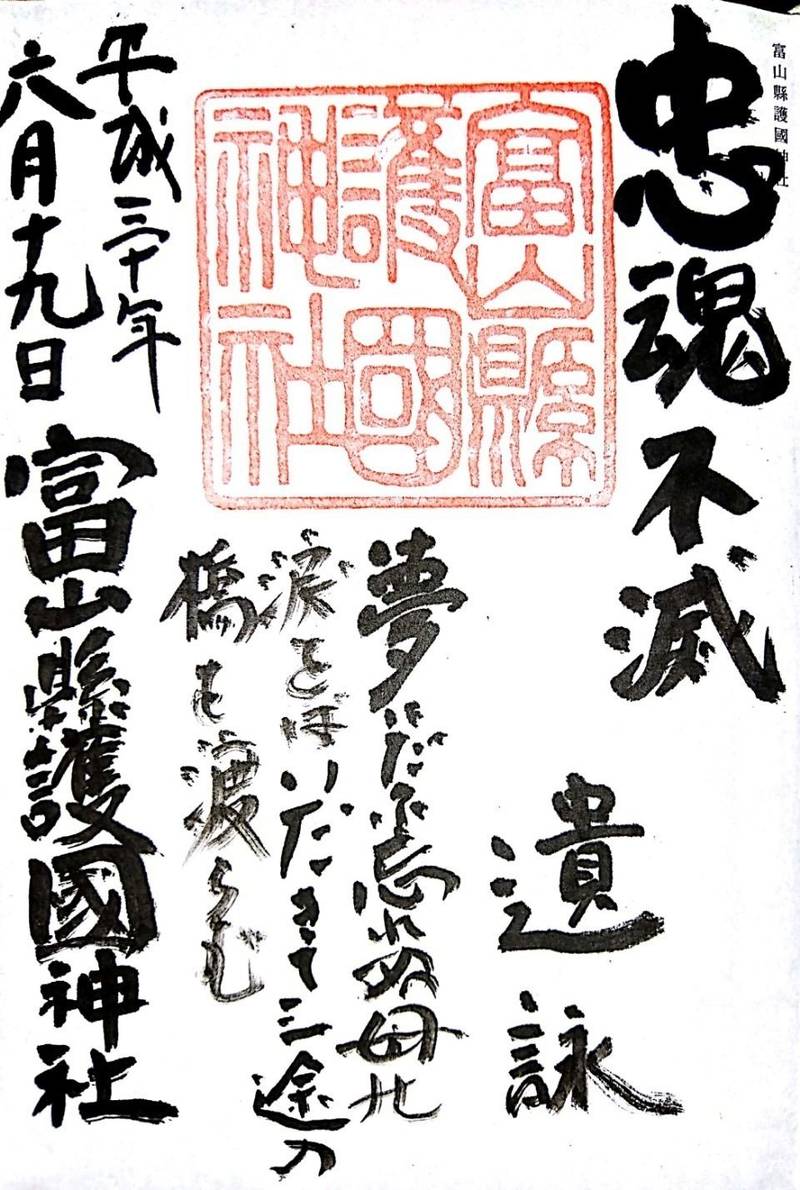 富山縣護國神社
忠魂不滅
遺詠
富山縣
護國
神社
夢だに忘れぬ母の
涙をばいだきて三途の
橋を渡らむ
平成三十年
六月十九日
富山縣護國神社